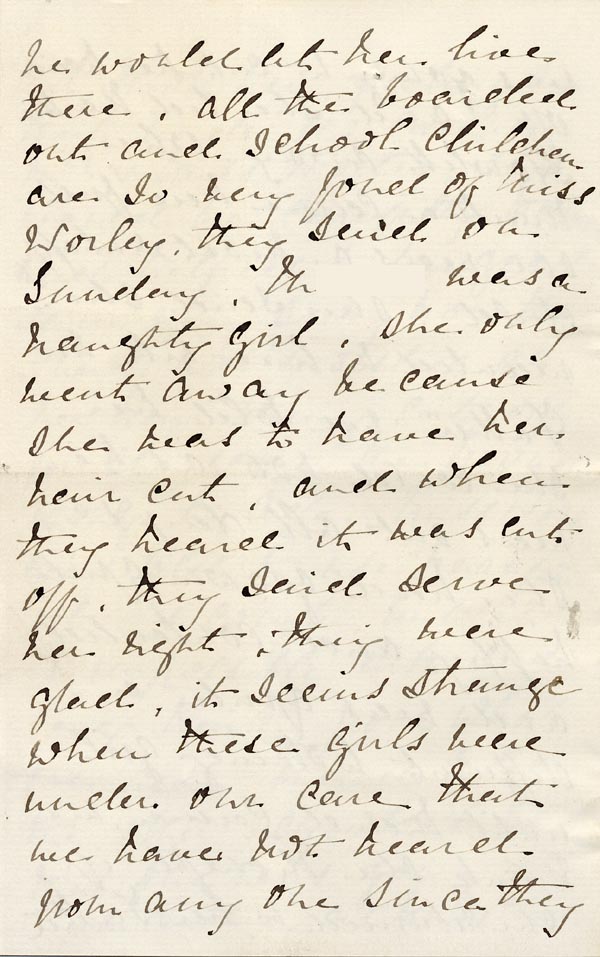 he would let her live
there, all the boarded
out and School Children
are so very fond of Miss
Worley, they said on
Sunday, Th was a
naughty girl, she only
went away because
she was to have her
hair cut, and when
they heard it was cut
off, they said serve
her right, they were
glad, it seems strange
when these girls were
under our care that
we have not heard
from any one since they